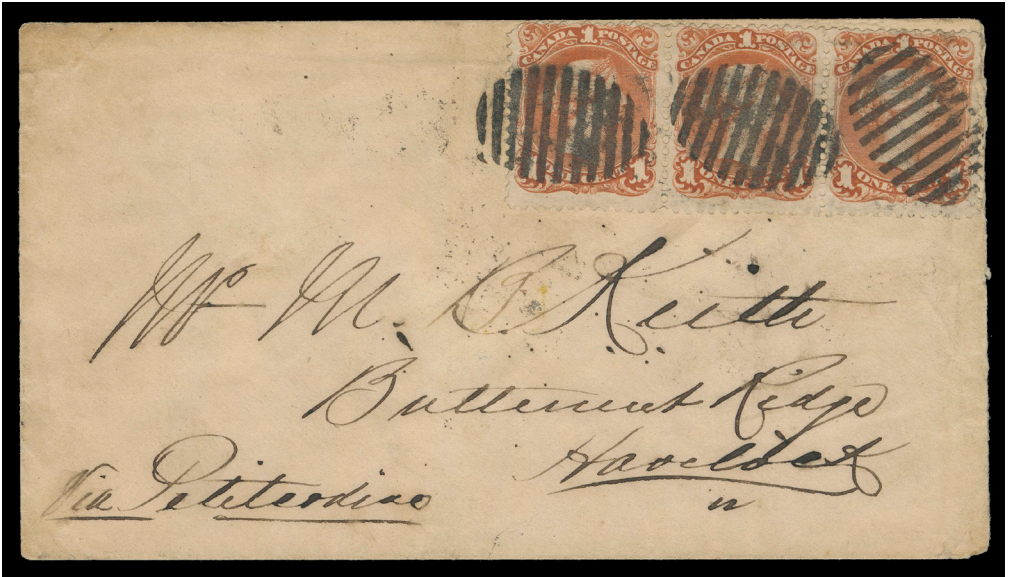 CANADA 1 POSTAGE CANADA 1 POSTAGE CANADA 1 POSTAGE
1 1 1 ONE
Mr M. B. Keith
Butternut Ridge
Havelock
Via Petitcodiac